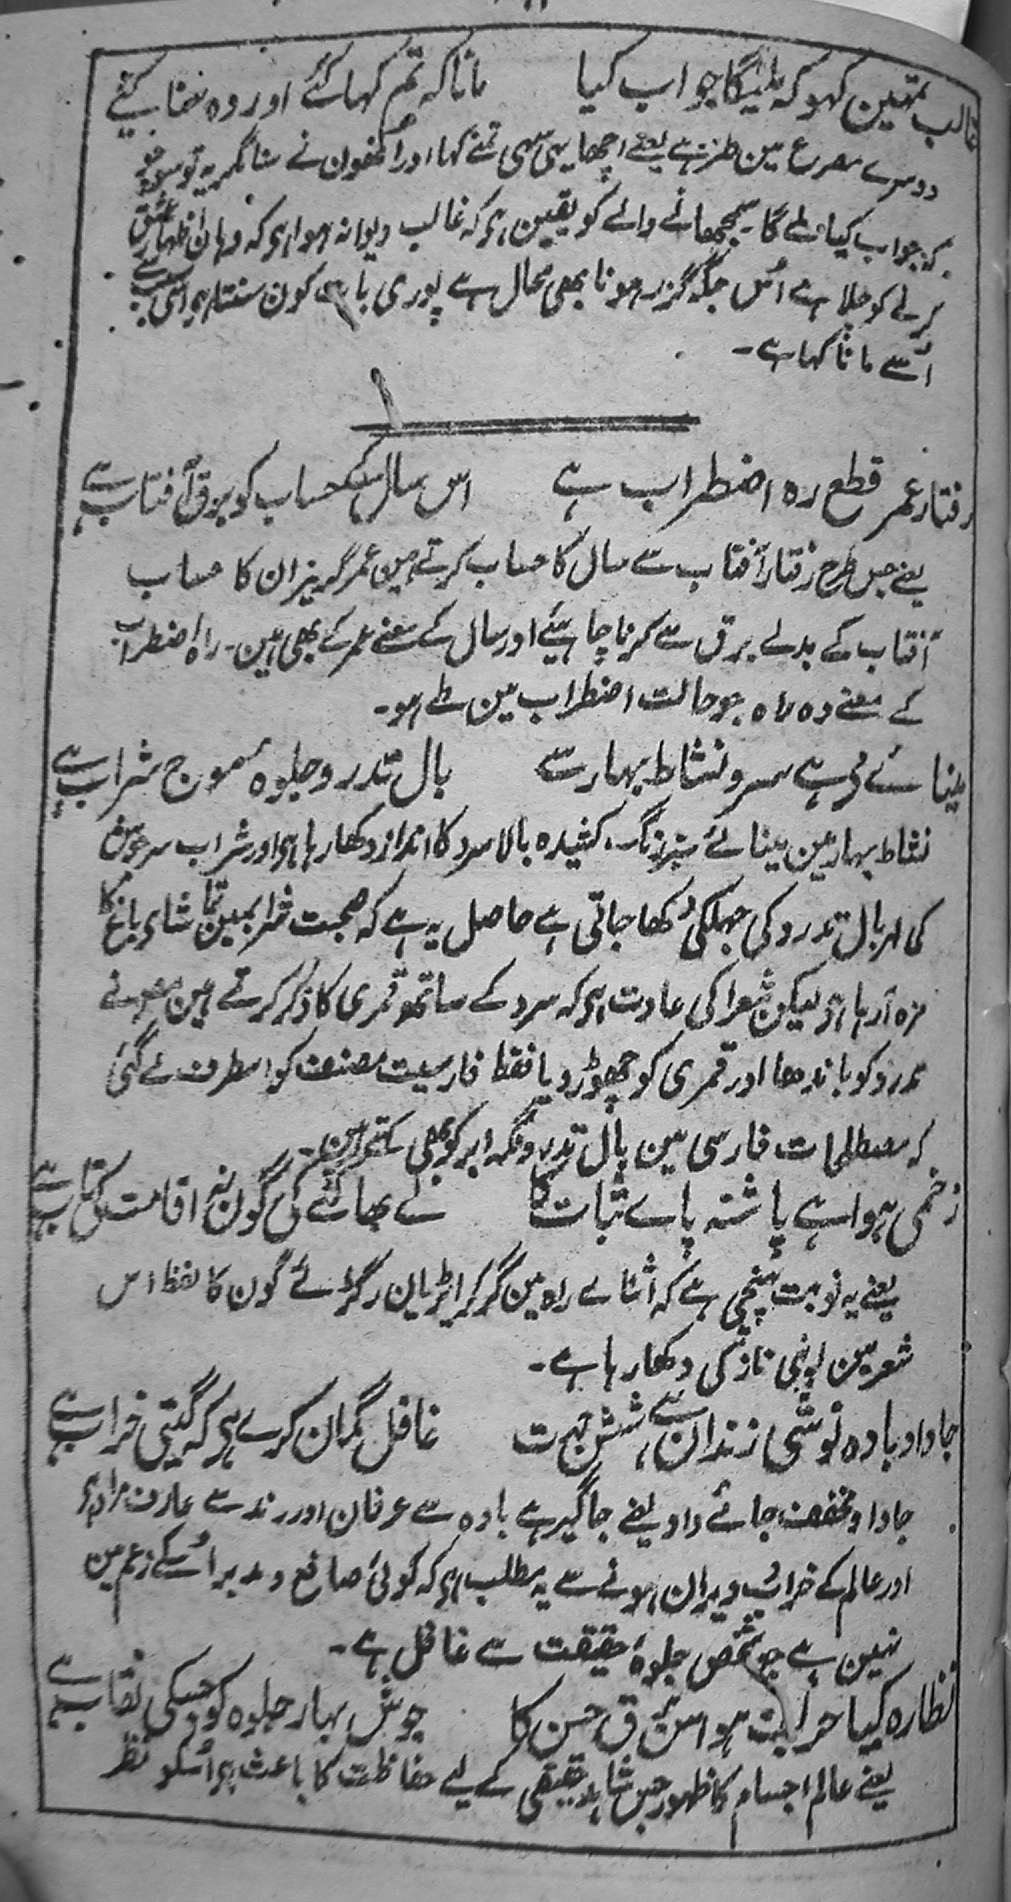 غالب تمھین کہو کہ ملیگا جواب کیا مانا کہ تم کہا کئے اور وہ سنا کیئے
دوسرے مصرع مین طنز ہے یعنے اچھا یہی سہی تمنے کہا اور اُنھون نے سنا مگر یہ تو سوچو
کہ جواب کیا ملے گا۔ سمجھانے والے کو یقین ہو کہ غالب دیوانہ ہوا ہو کہ وہان اظہار عشق
کرنے کو چلا ہے اُس جگہ گزر ہونا بھی محال ہے پوری بات کون سنتا ہو اسی سبب سے
اُسے مانا کہا ہے۔
رفتار عمر قطع رہ اضطراب ہے اس سال کے حساب کو برق آفتاب ہے
یعنے جس طرح رفتار آفتاب سے سال کا حساب کرتے ہین عمر گریزان کا حساب
آفتاب کے بدلے برق سے کرنا چاہیئے اور سال کے معنے عمر کے بھی ہین۔ راہ اضطراب
کے معنے وہ راہ جو حالت اضطراب مین طے ہو۔
مینائے مے ہے سرو نشاط بہار سے بال تدرو جلوہ موج شراب ہے
نشاط بہار مین مینائے سبز رنگ کشیدہ بالا سرو کا انداز دکھا رہا ہو اور شراب سرجوش
کی لہر بال تدرو کی جھلکی دکھا جاتی ہے حاصل یہ ہے کہ صحبت شراب مین تماشائے باغ کا
مزہ آرہا ہو لیکن شعرا کی عادت ہو کہ سرو کے ساتھ قمری کا ذکر کرتے ہین مصنف نے
تدرو کو باندھا اور قمری کو چھوڑ دیا فقط فارسیت مصنف کو اسطرف لے گئی
کہ مصطلحات فارسی مین بال تدرو لکۂ ابر کو بھی کہتے ہین۔
زخمی ہوا ہے پاشنہ پاے ثبات کا نے بھاگنے کی گون نہ اقامت کی تاب ہے
یعنے یہ نوبت پہنچی ہے کہ اثنائے راہ مین گر کر ایڑیان رگڑائے گون کا لفظ اس
شعر مین اپنی تازگی دکھا رہا ہے۔
جاداد بادہ نوشی رندان ہے شش جہت غافل گمان کرے ہو کہ گیتی خراب ہے
جاداد مخفف جائے داد یعنے جاگیر ہے بادہ سے عرفان اور رند سے عارف مراد ہو
اور عالم کے خراب و ویران ہونے سے یہ مطلب ہو کہ کوئی صانع و مدبر اُسکے زعم مین
نہین ہے جو شخص جلوۂ حقیقت سے غافل ہے۔
نظارہ کیا حریف ہو اس برق حسن کا جوش بہار جلوہ کو جسکی نقاب ہے
یعنے عالم اجسام کا ظہور جس شاہد حقیقی کے لیے حفاظت کا باعث ہو اُسکو نظر